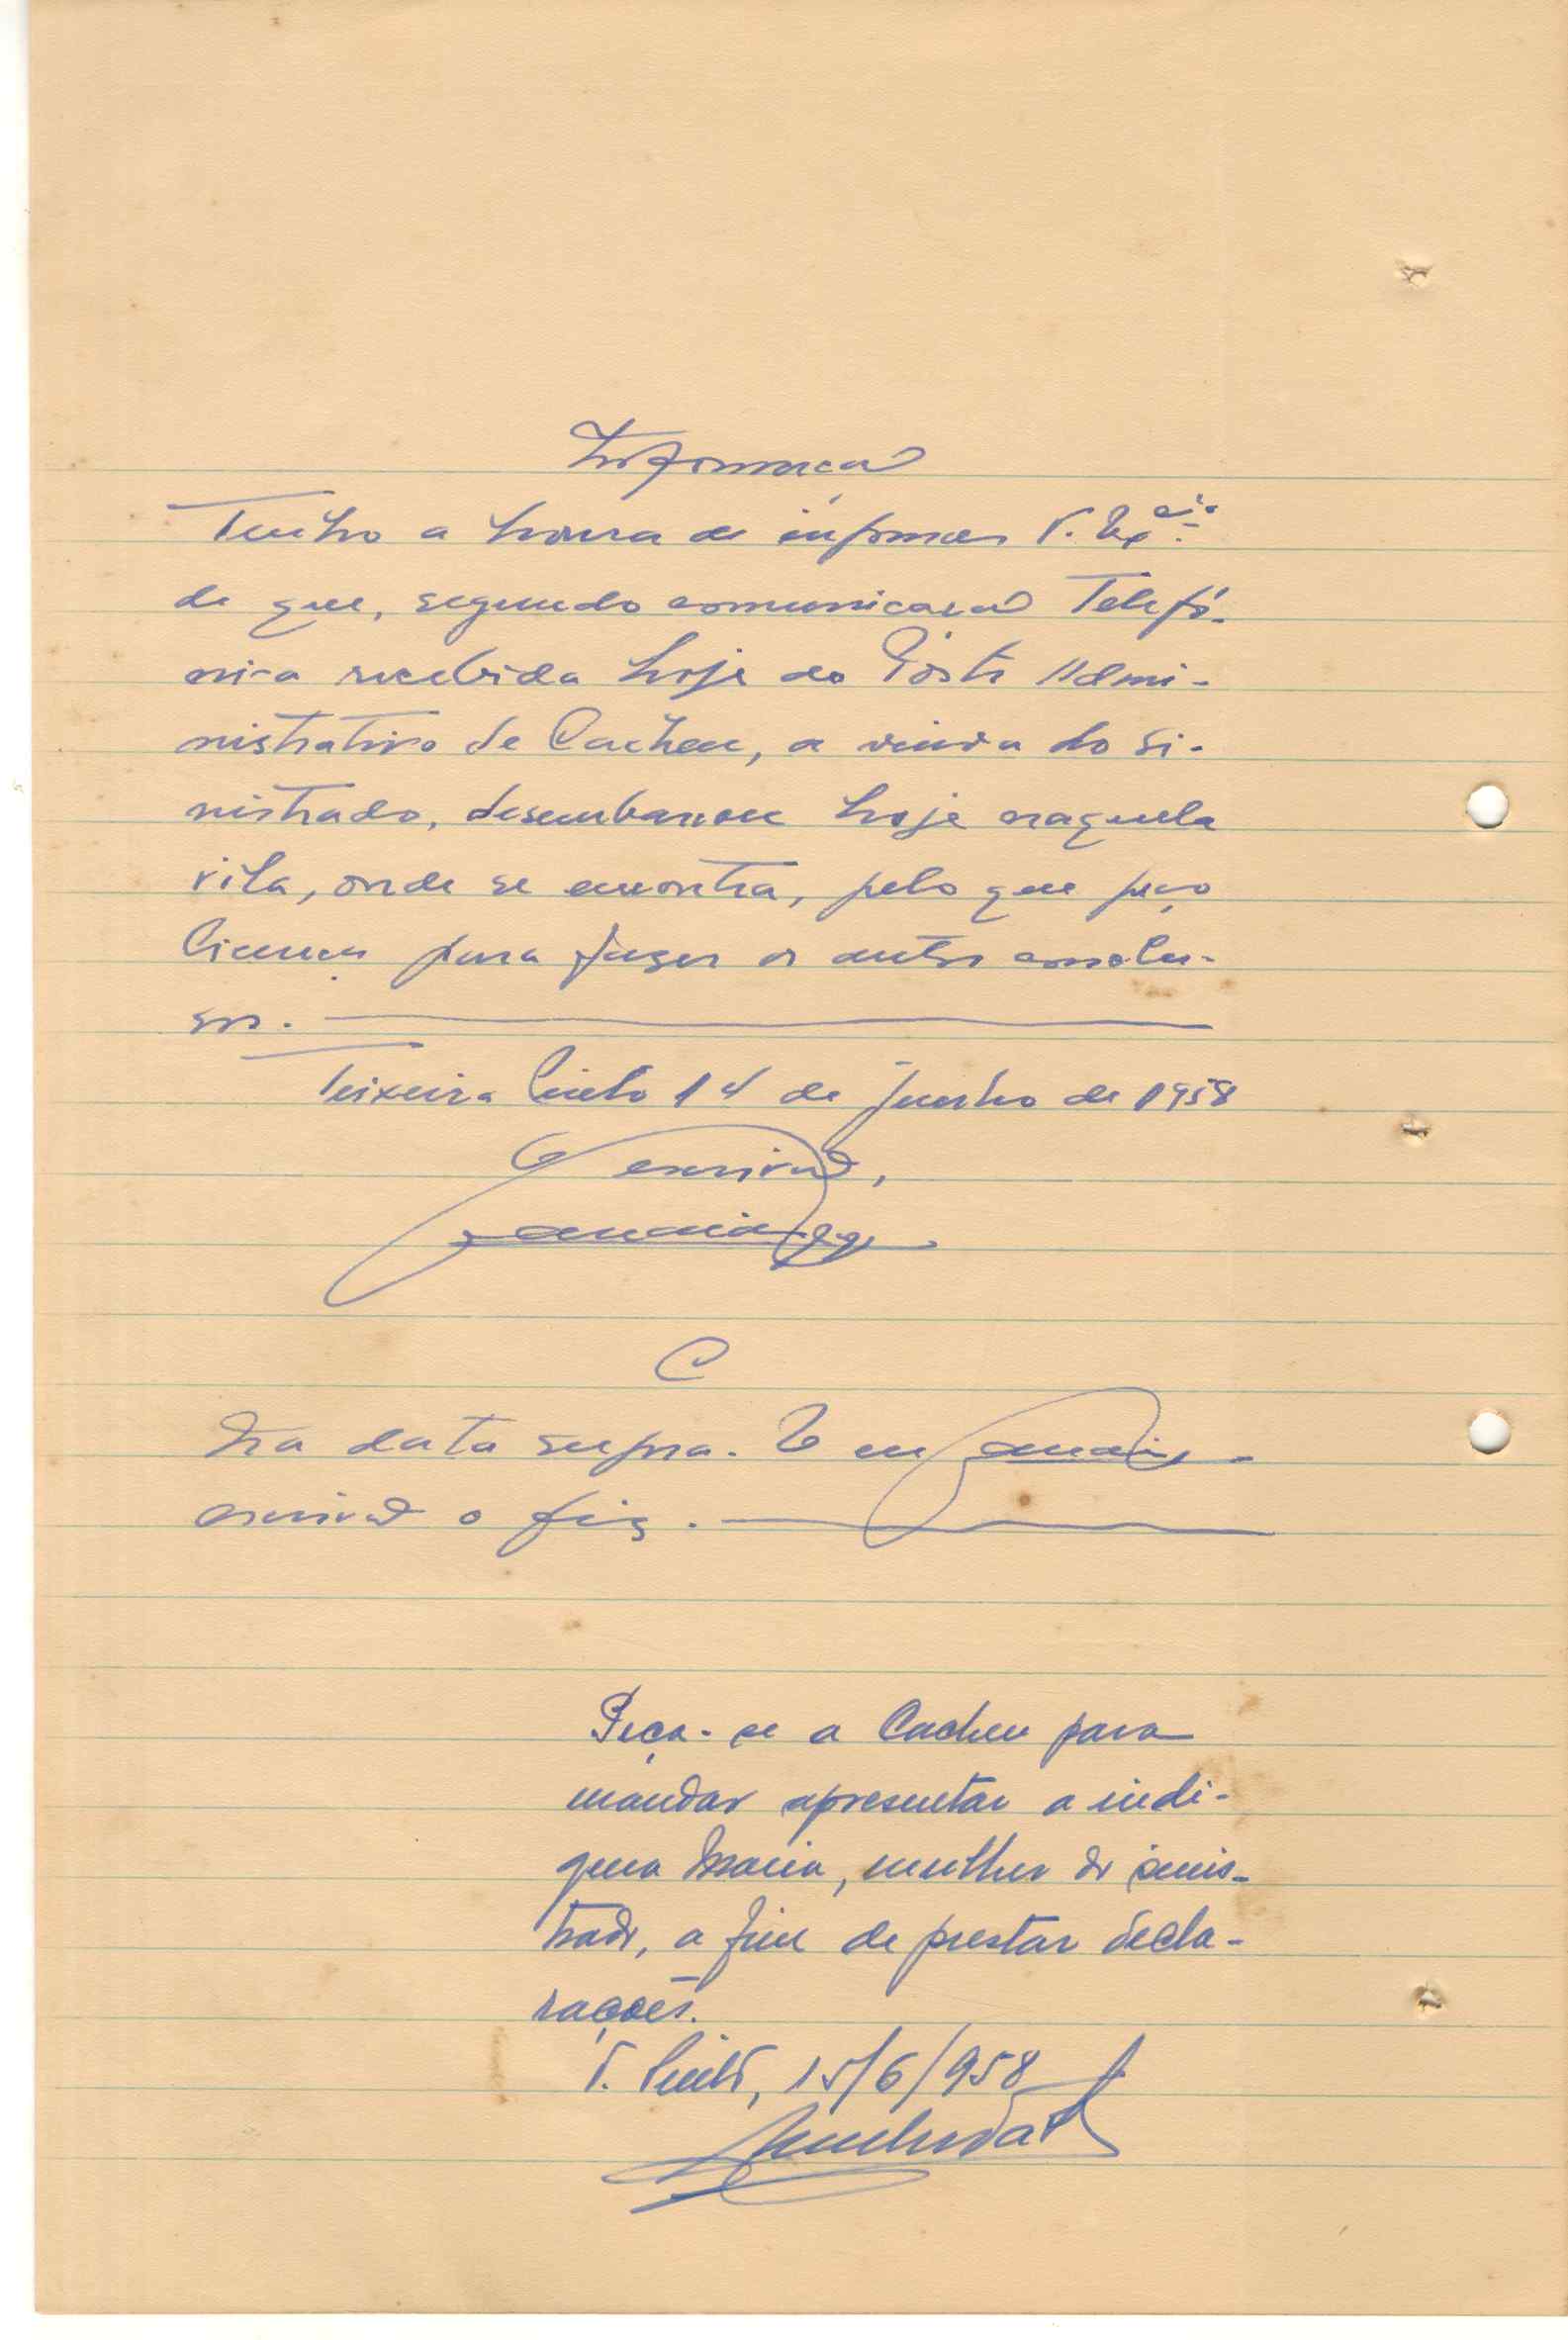 Informação
Tenho a honra de informar V. Exª.
de que, segundo comunicação Telefó-
nica recebida hoje do Pôsto Admi-
nistrativo de Cacheu, a viuva do si-
nistrado, desembarcou hoje naquela
vila, onde se encontra, pelo que peço
licença para fazer os autos conclu-
sos.
Teixeira Pinto 14 de Junho de 1958
O escrivão,
C
Na data supra. E eu
escrivão o fiz.
Peça-se a Cacheu para
mandar apresentar a indí-
gena Maria, mulher do sinis-
trado, a fim de prestar decla-
rações.
T. Pinto, 15/6/958